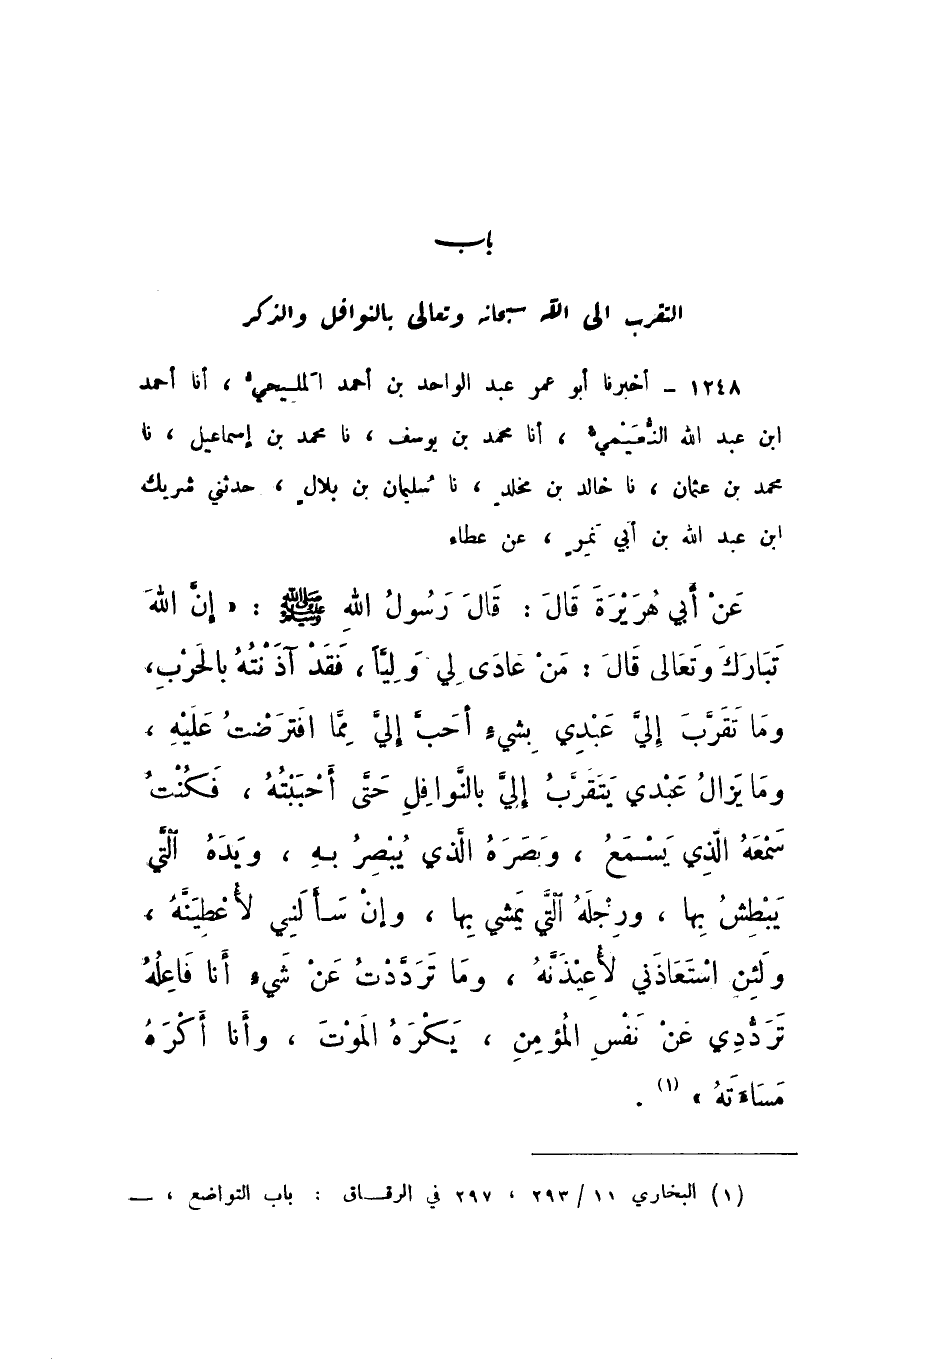 باب
التقرب الى الله سبحانه وتعالى بالنوافل والذكر
١٢٤٨ - أخبرنا أبو عمر عبد الواحد بن أحمد المليحيُّ ، أنا أحمد
ابن عبد الله النُّعَيْميُّ ، أنا محمد بن يوسف ، نا محمد بن إسماعيل ، نا
محمد بن عثمان ، نا خالد بن مخلدٍ ، نا سُليمان بن بلالٍ ، حدثني شريك
ابن عبد الله بن أبي نَمِرٍ ، عن عطاء
عَنْ أَبي هُرَيْرَةَ قَالَ : قَالَ رَسُولُ اللهِ ﷺ : « إِنَّ اللهَ
تَبَارَكَ وَتَعَالى قَالَ : مَنْ عَادَى لِي وَلِيَّاً ، فَقَدْ آذَنْتُهُ بِالحَرْبِ،
ومَا تَقَرَّبَ إِليَّ عَبْدِي بِشيءٍ أَحَبَّ إِليَّ مِمَّا افْتَرَضْتُ عَلَيْهِ ،
ومَا يَزالُ عَبْدي يَتَقَرَّبُ إِليَّ بالنَّوافِلِ حَتَّى أَحْبَبْتُهُ ، فَكُنْتُ
سَمْعَهُ الَّذِي يَسْمَعُ ، وَبَصَرَهُ الَّذي يُبْصِرُ بِهِ ، ويَدَهُ الَّتي
يَبْطِشُ بِها ، ورِجْلَهُ الَّتي يَمْشي بِها ، وإنْ سَأَلَني لأُعْطِيَنَّهُ ،
وَلَئِنِ اسْتَعَاذَني لأُعِيْذَنَّهُ ، ومَا تَرَدَّدْتُ عَنْ شَيءٍ أَنا فَاعِلُهُ
تَرَدُّدِي عَنْ نَفْسِ المُؤمِنِ ، يَكْرَهُ المَوْتَ ، وأَنا أَكْرَهُ
مَسَاءَتَهُ » (١) .
(١) البخاري ١١/ ٢٩٣ ، ٢٩٧ في الرقاق : باب التواضع ، —